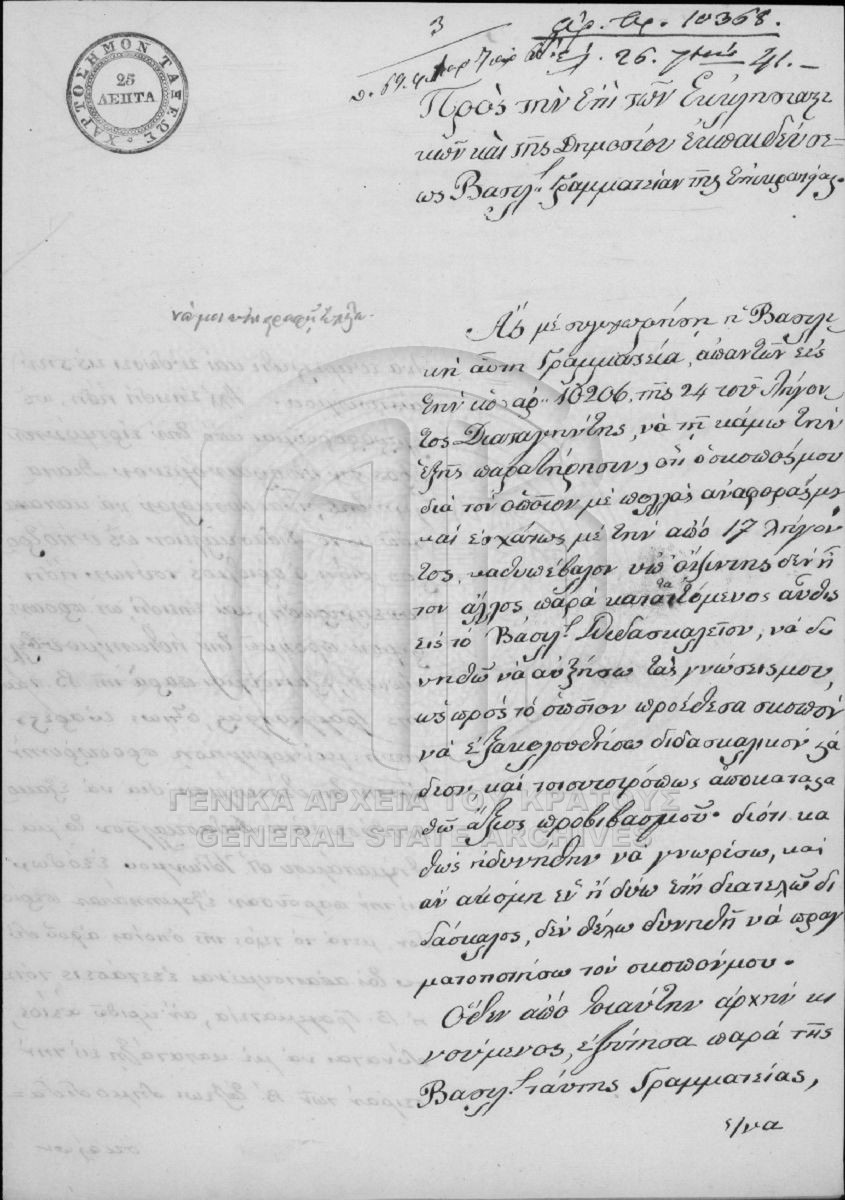 3
ἀρ. πρ. 10368.
26. 7βρίου 41.
ΧΑΡΤΟΣΗΜΟΝ ΤΑΞΕΩΣ
25
ΛΕΠΤΑ
Πρὸς τὴν ἐπὶ τῶν Ἐκκλησιαστι
κῶν καὶ τῆς Δημοσίου Ἐκπαιδεύσε-
ως Βασιλ. Γραμματείαν τῆς Ἐπικρατείας.
Ἄς μὲ συγχωρήση ἡ Βασιλι
κὴ αὕτη Γραμματεία, ἀπαντῶν εἰς
τὴν ὑπ' ἀρ. 10206, τῆς 24 τοῦ λήγον
τος Διαταγήντης, νὰ τῇ κάμω τὴν
ἑξῆς παρατήρησιν, ὅτι ὁ σκοπόςμου
διὰ τὸν ὁποῖον μὲ πολλὰς ἀναφοράςμου
καὶ ἐσχάτως μὲ τὴν ἀπὸ 17 λήγον
τος, καθυπέβαλον ὑπ' ὄψιντης δὲν ἦ
τον ἄλλος παρὰ κατατατόμενος αὖθις
εἰς τὸ Βασιλ. Διδασκαλεῖον, νὰ δυ
νηθῶ νὰ αὐξήσω τὰς γνώσειςμου,
ὡς πρὸς τὸ ὁποῖον προέθεσα σκοπὸν
νὰ ἐξακολουθήσω διδασκαλικὸν στά
διον, καὶ τοιουτοτρόπως ἀποκατασταθῶ
θῶ ἄξιος προβιβασμοῦ. διότι κα
θὼς ἠδυνήθην νὰ γνωρίσω, καὶ
ἂν ἀκόμη ἓν ἢ δύω ἔτη διατελῶ δι
δάσκαλος, δὲν θέλω δυνηθῆ νὰ πραγ
ματοποιήσω τὸν σκοπόνμου.
Ὅθεν ἀπὸ τοιαύτην ἀρχὴν κι
νούμενος, ἐζήτησα παρὰ τῆς
Βασιλ. ταύτης Γραμματείας,
ἵνα
ΓΕΝΙΚΑ ΑΡΧΕΙΑ ΤΟΥ ΚΡΑΤΟΥΣ
GENERAL STATE ARCHIVES